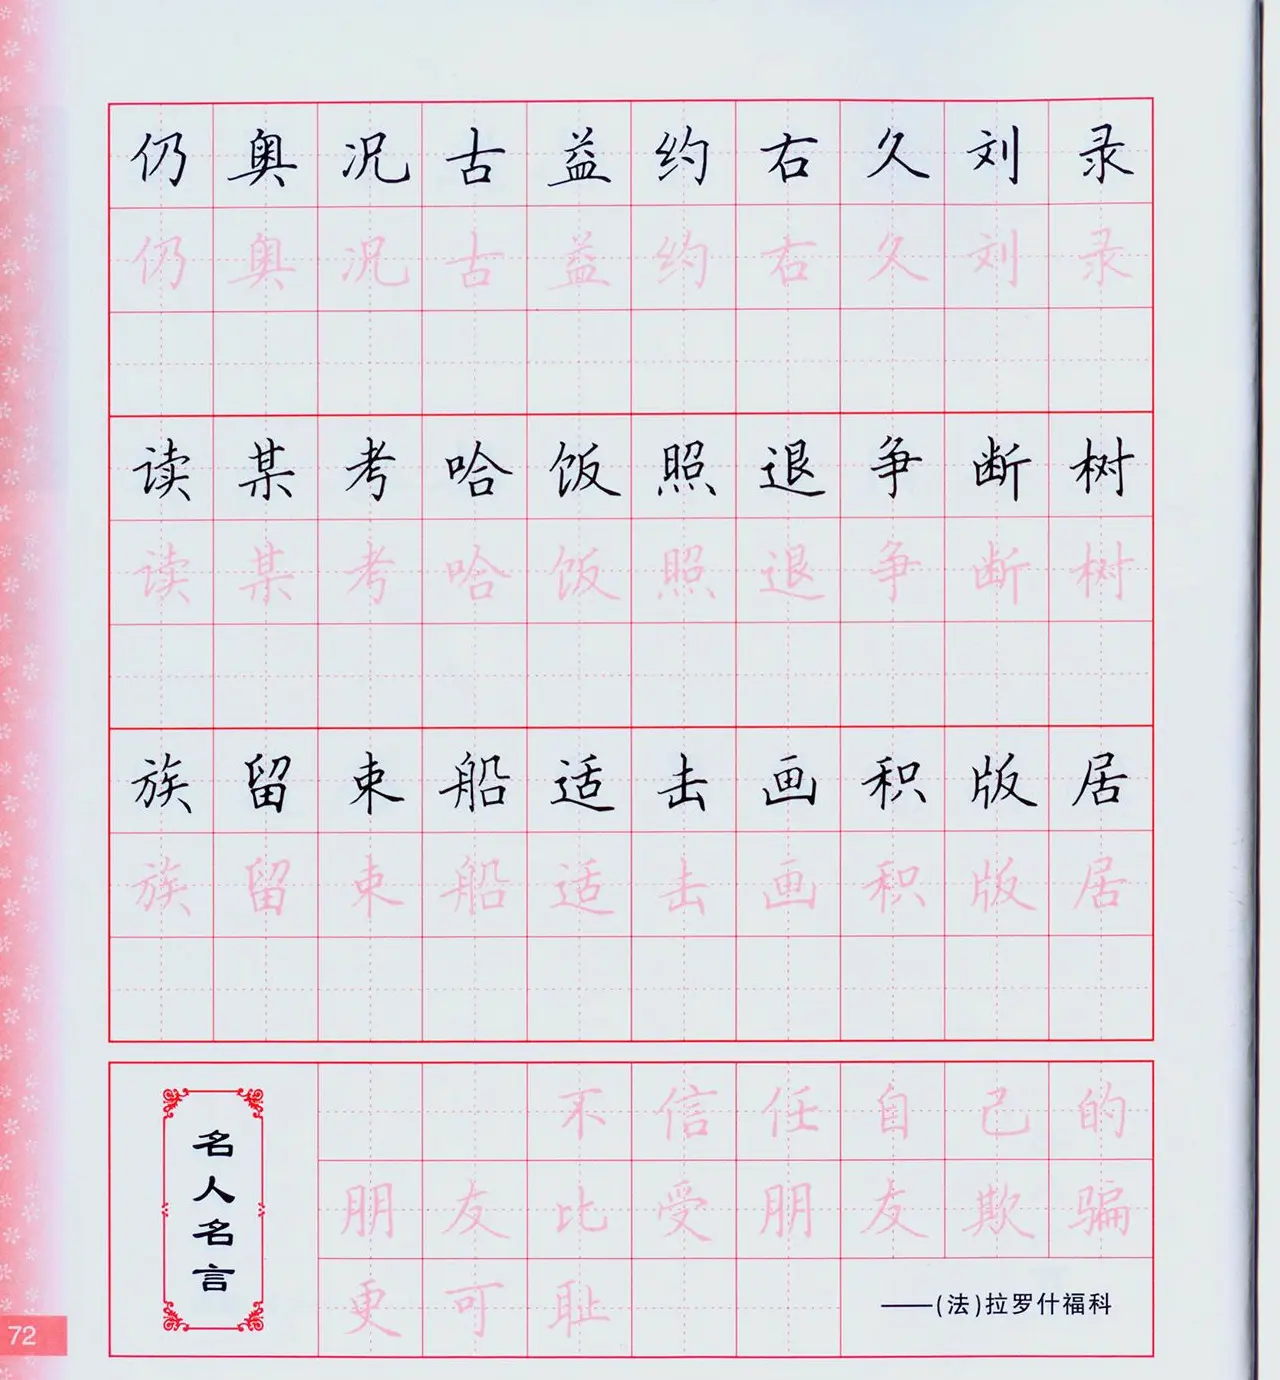 仍奥况古益约右久刘录
仍奥况古益约右久刘录
读某考哈饭照退争断树
读某考哈饭照退争断树
族留束船适击画积版居
族留束船适击画积版居
名人名言
不信任自己的
朋友比受朋友欺骗
更可耻
——(法)拉罗什福科
72